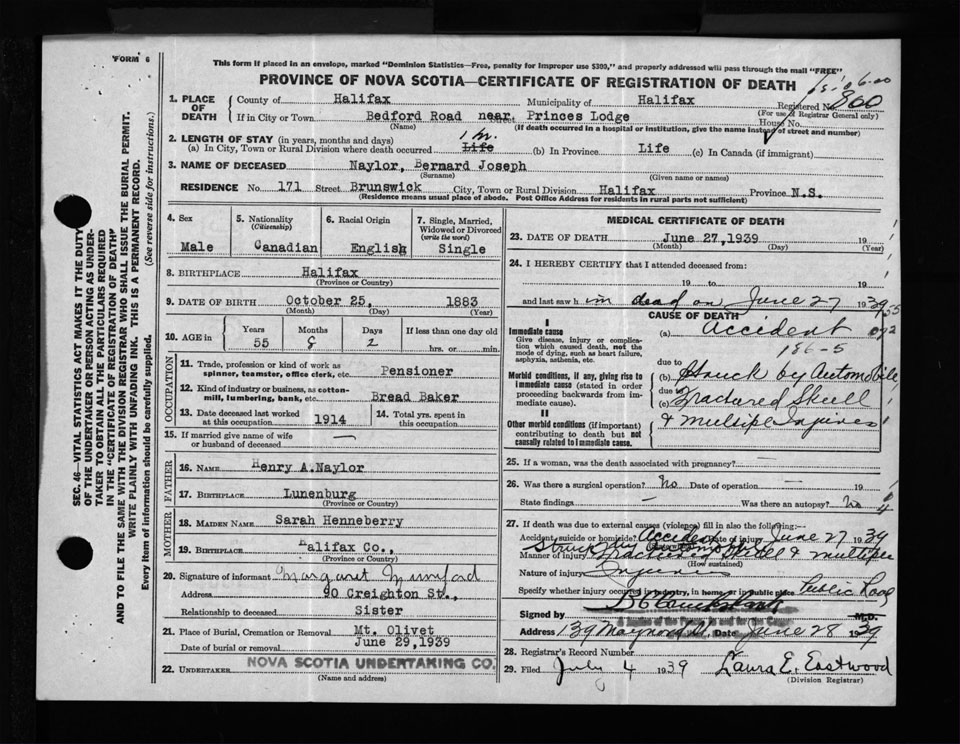 FORM 6
This form if placed in an envelope, marked "Dominion Statistics—Free, penalty for improper use $300," and properly addressed will pass through the mail "FREE"
PROVINCE OF NOVA SCOTIA—CERTIFICATE OF REGISTRATION OF DEATH
SEC. 46—VITAL STATISTICS ACT MAKES IT THE DUTY
OF THE UNDERTAKER OR PERSON ACTING AS UNDER-
TAKER TO OBTAIN ALL THE PARTICULARS REQUIRED
IN THE "CERTIFICATE OF REGISTRATION OF DEATH"
AND TO FILE THE SAME WITH THE DIVISION REGISTRAR WHO SHALL ISSUE THE BURIAL PERMIT.
WRITE PLAINLY WITH UNFADING INK. THIS IS A PERMANENT RECORD.
Every item of information should be carefully supplied. (See reverse side for instructions.)
1. PLACE OF DEATH County of Halifax Municipality of Halifax Registered No. 800
(For use of Registrar General only)
If in City or Town Bedford Road near Princes Lodge House No.
(Name) (If death occurred in a hospital or institution, give the name instead of street and number)
2. LENGTH OF STAY (in years, months and days)
(a) In City, Town or Rural Division where death occurred Life (b) In Province Life (c) In Canada (if immigrant)
3. NAME OF DECEASED Naylor, Bernard Joseph
(Surname) (Given name or names)
RESIDENCE No. 171 Street Brunswick City, Town or Rural Division Halifax Province N.S.
(Residence means usual place of abode. Post Office Address for residents in rural parts not sufficient)
4. Sex Male
5. Nationality (Citizenship) Canadian
6. Racial Origin English
7. Single, Married, Widowed or Divorced (write the word) Single
8. BIRTHPLACE Halifax
(Province or Country)
9. DATE OF BIRTH October 25, 1883
(Month) (Day) (Year)
10. AGE in Years 55 Months 8 Days 2 If less than one day old hrs. or min.
OCCUPATION
11. Trade, profession or kind of work as spinner, teamster, office clerk, etc. Pensioner
12. Kind of industry or business, as cotton-mill, lumbering, bank, etc. Bread Baker
13. Date deceased last worked at this occupation 1914 14. Total yrs. spent in this occupation
15. If married give name of wife or husband of deceased —
FATHER
16. NAME Henry A.Naylor
17. BIRTHPLACE Lunenburg
(Province or Country)
MOTHER
18. MAIDEN NAME Sarah Henneberry
19. BIRTHPLACE Halifax Co.,
(Province or Country)
20. Signature of informant Margaret Mumford
Address 90 Creighton St.,
Relationship to deceased Sister
21. Place of Burial, Cremation or Removal Mt. Olivet
Date of burial or removal June 29,1939
22. UNDERTAKER NOVA SCOTIA UNDERTAKING CO.
(Name and address)
MEDICAL CERTIFICATE OF DEATH
23. DATE OF DEATH June 27,1939 19
(Month) (Day) (Year)
24. I HEREBY CERTIFY that I attended deceased from:
19 to 19
and last saw h im dead on June 27 1939
CAUSE OF DEATH
I
Immediate cause
Give disease, injury or complication which caused death, not the mode of dying, such as heart failure, asphyxia, asthenia, etc.
(a) Accident
186-5
due to
Morbid conditions, if any, giving rise to immediate cause (stated in order proceeding backwards from immediate cause).
(b) Struck by Automobile
due to
(c) Fractured Skull
II
Other morbid conditions (if important) contributing to death but not causally related to immediate cause.
& multiple Injuries
25. If a woman, was the death associated with pregnancy? —
26. Was there a surgical operation? No Date of operation — 19
State findings — Was there an autopsy? No
27. If death was due to external causes (violence) fill in also the following:
Accident, suicide or homicide? Accident Date of injury June 27 1939
Struck by Automobile
Manner of injury Fractured Skull & multiple
(How sustained)
Nature of injury Injuries
Specify whether injury occurred in industry, in home or in public place Public Road
Signed by M.D.
Address 139 Maynard St. Date June 28 1939
28. Registrar's Record Number
29. Filed July 4 1939 Laura E. Eastwood
(Division Registrar)